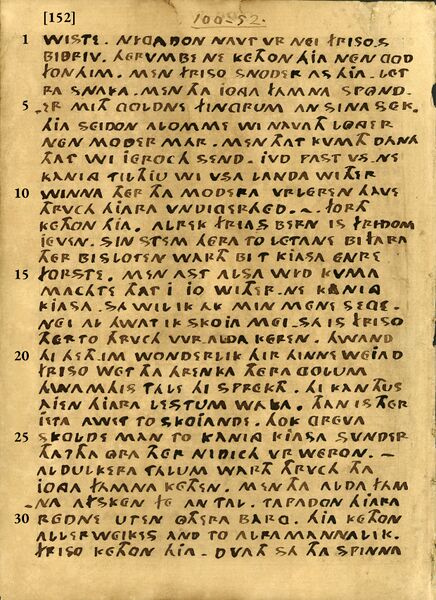 [152]
100-52.
1 WISTE . NIGADON NAVT VR NEI FRISO.S
BIDRIV . HERVMBE NE KETHON HIA NEN GOD
FON HIM . MEN FRISO SNODER AS HIA . LET
RA SNAKA . MEN THA IOGA FAMNA SPOND-
5 -ER MITH GOLDNE FINGRUM AN SINA SEK .
HIA SEIDON ALOMME WI NAVATH LONGER
NEN MODER MAR . MEN THAT KVMTH DANA
THAT WI IEROCH SEND . IVD PAST VS . NE
KANING TILTHIU WI VSA LANDA WITHER
10 WINNA THER THA MODERA VRLEREN HAVE
THRVCH HIARA VNDIGERHED . ~ . FORTH
KETHON HIA . ALREK FRIAS BERN IS FRIDOM
IEVEN . SIN STEM HERA TO LETANE BIFARA
THER BISLOTEN WARTH BI T KIASA ENRE
15 FORSTE . MEN AST ALSA WID KVMA
MACHTE THAT I IO WITHER . NE KANING
KIASA . SA WIL IK AK MIN MENE SEGE .
NEI AL HWAT IK SKOIA MEI . SA IS FRISO
THERTO THRVCH WR.ALDA KEREN . HWAND
20 HI HETH IM WONDERLIK HIR HINNE WEIAD
FRISO WET THA HRENKA THERA GOLUM
HWAM HIS TALE HI SPREKTH . HI KAN THUS
AIEN HIARA LESTUM WAKA . THAN IS THER
IETA AWET TO SKOIANDE . HOK GREVA
25 SKOLDE MAN TO KANING KIASA SUNDER
THAT THA ORA THER NIDICH VR WERON . ~
ALDULKERA TALUM WARTH THRVCH THA
IOGA FAMNA KETHEN . MEN THA ALDA FAM
-NA AFSKEN FE AN TAL . TAPADON HIARA
30 REDNE UTEN OTHERA BARG . HIA KETHON
ALLERWEIKES AND TO ALRAMANNALIK .
FRISO KETHON HIA . DVATH SA THA SPINNA